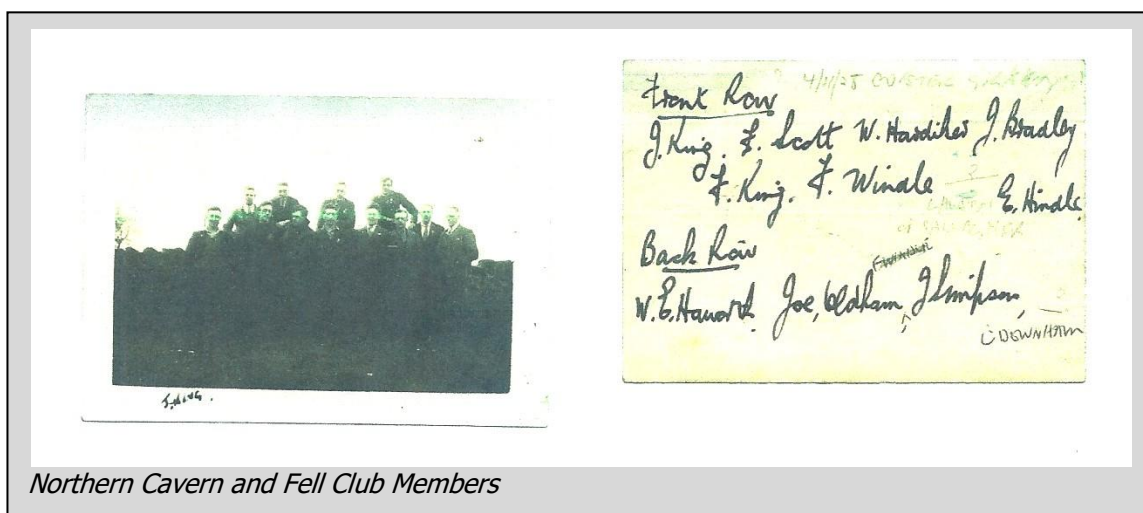 J. KING.
4/11/25
Front Row
J. King. F. Scott W. Hardiker J. Bradley
F. King. F. Windle E. Hindle
Back Row
F WINDLE
W. E. Haworth Joe, Oldham, J Simpson,
C DOWNHAM
Northern Cavern and Fell Club Members